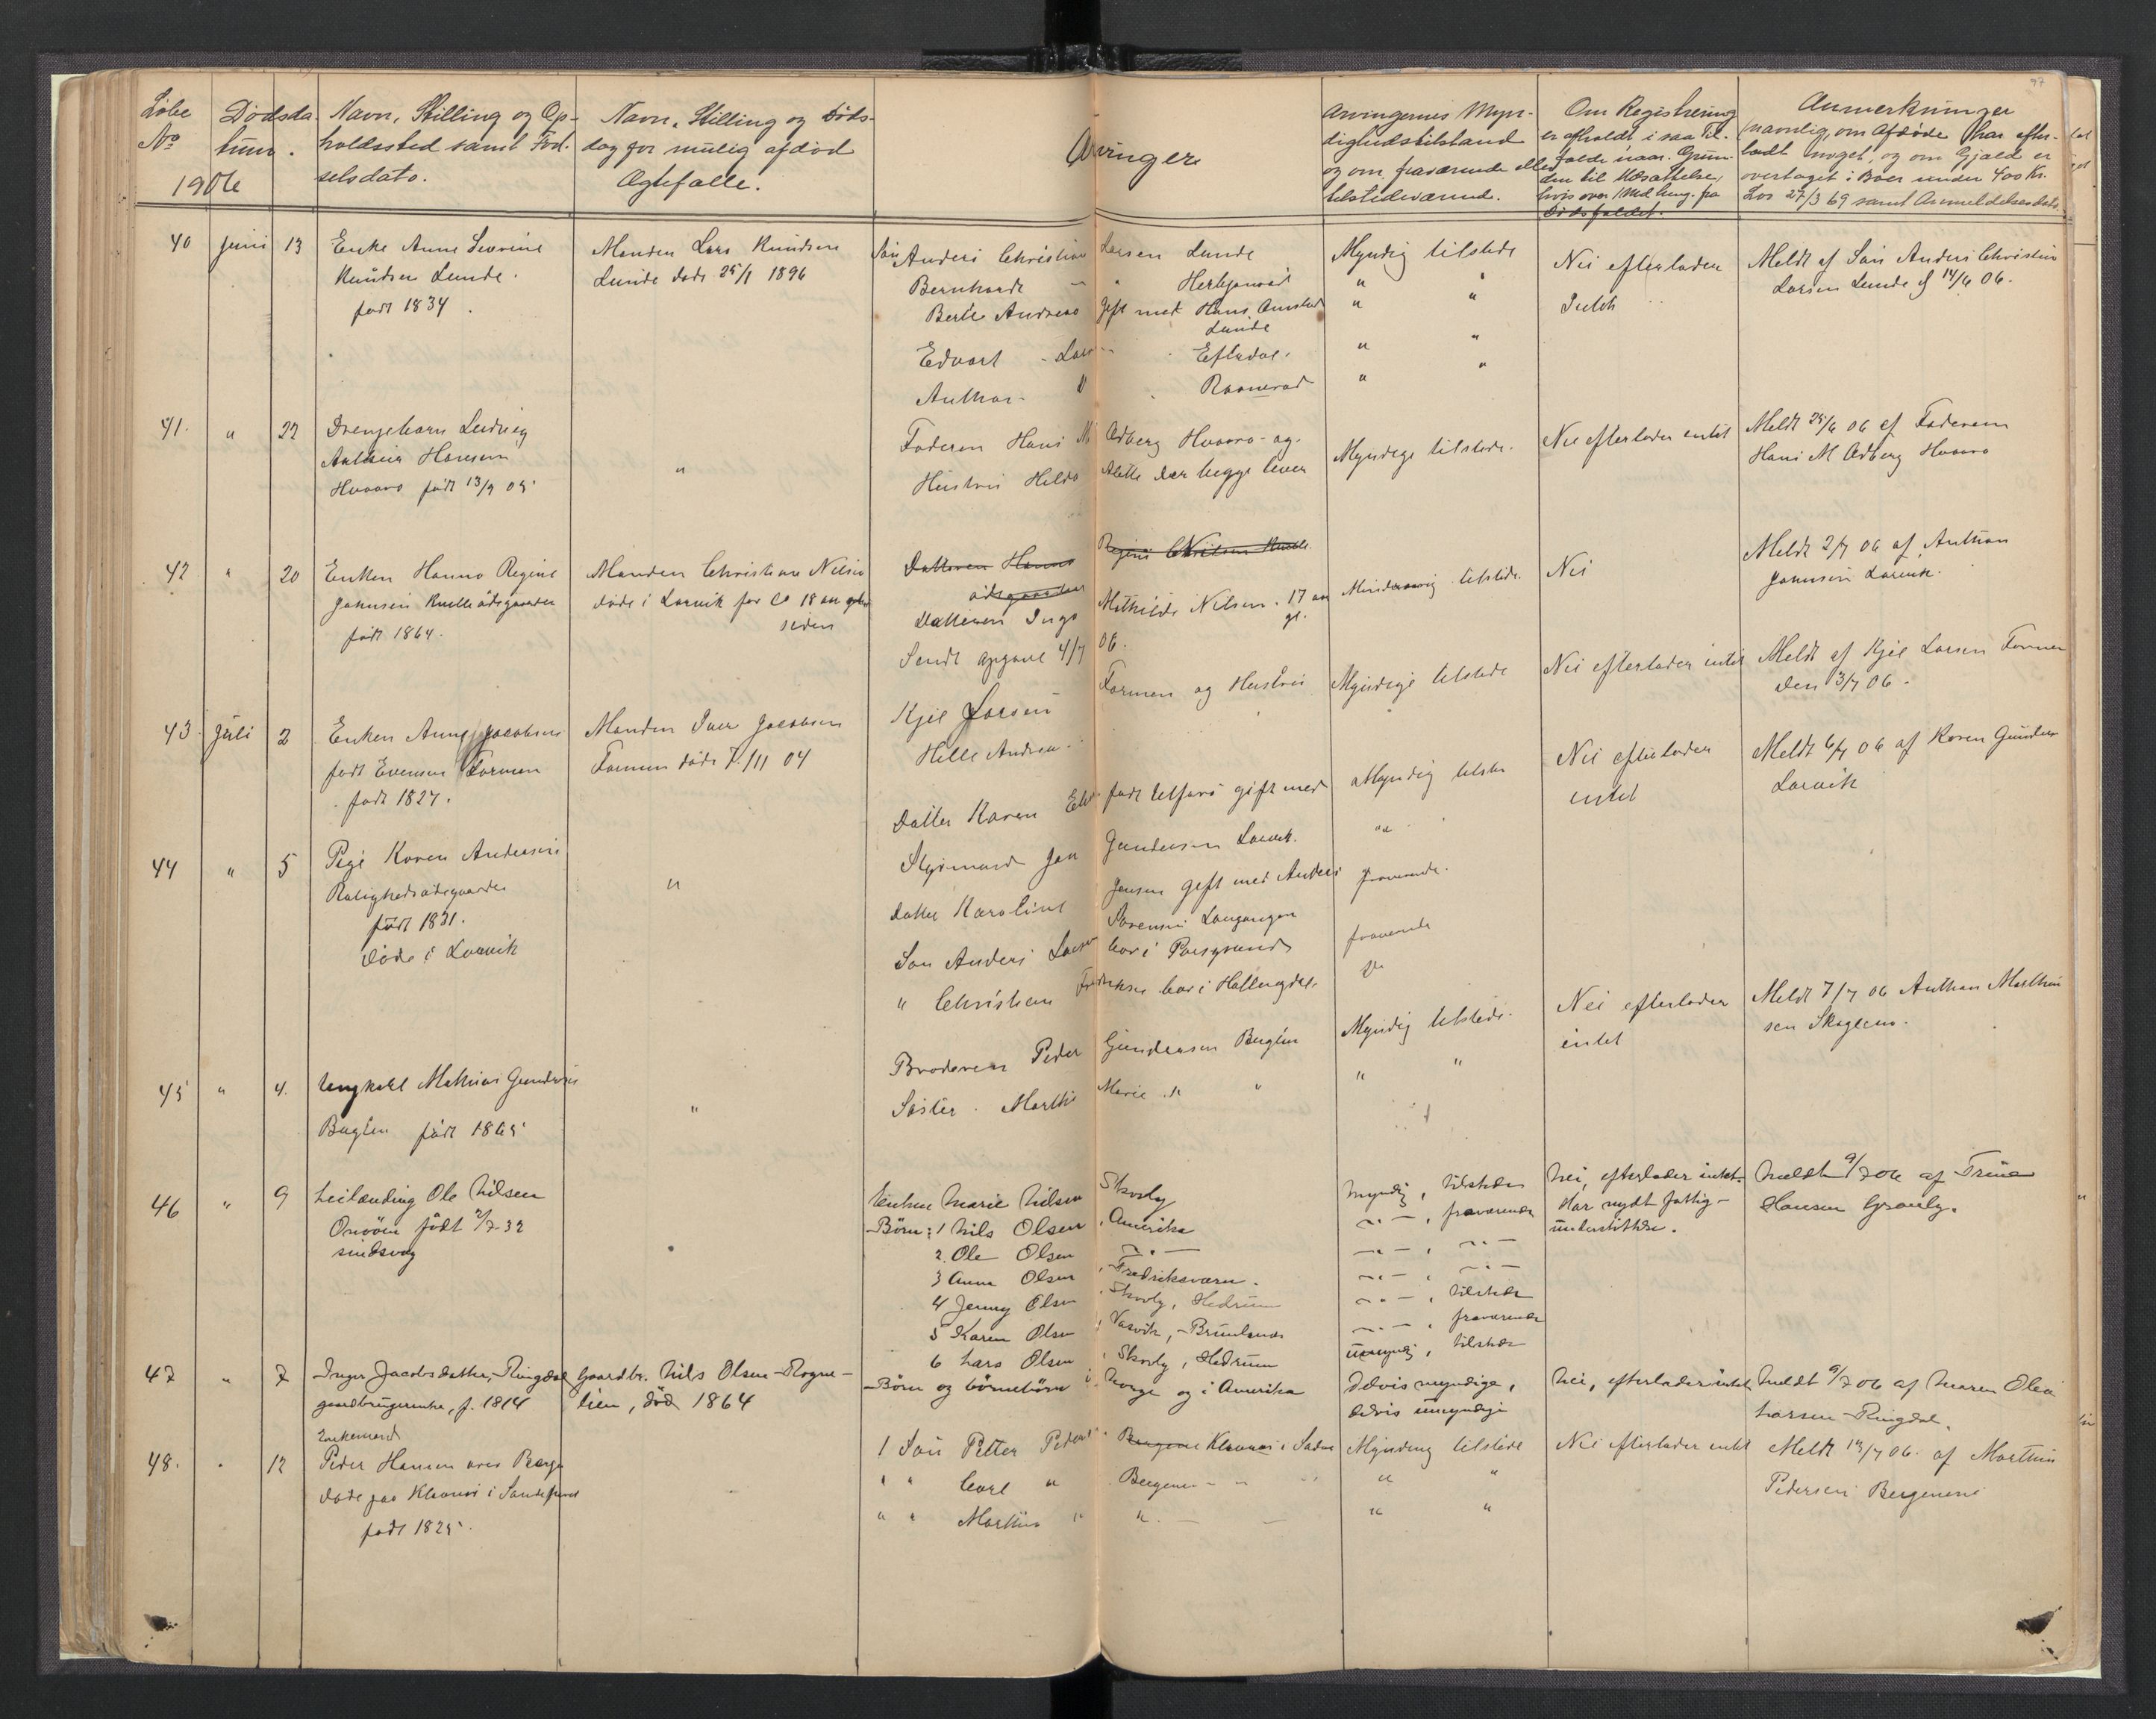 97
Løbe No 1906
Dødsda-
tum.
Navn, Stilling og Op-
holdssted samt Fød-
selsdato.
Navn, Stilling og Døds-
dag for mulig afdød
Ægtefælle.
Arvinger
Arvingernes Myn-
dighedstilstand
og om fraværende eller
tilstedeværende.
Om Registrering
er afholdt i saa Til-
fælde naar. Grun-
den til Udsættelse,
hvis over 1 Md heng. fra
Dødsfaldet.
Anmerkninger
navnlig om Afdøde har efter-
ladt noget, og om Gjæld er
overtaget i Boer under 400 Kr.
Lov 27/3 69 samt Anmeldelsesdato.
40 Juni 13
Enke Anne Severine
Knudsen Lunde.
født 1834.
Manden Lars Knudsen
Lunde døde 25/1 1896
Søn Anders Christian Larsen Lunde
Bernhardt " Herbjønrød
Berte Andrea gift med Hans
Lunde
Edvart Lars Eftedal.
Anthon " Raanerød
Myndig tilstede
" "
" "
" "
" "
Nei efterlader
Intet
Meldt af Søn Anders Christian
Larsen Lunde d 14/6 06.
41. " 22
Drengebarn Ludvig
Hansen
Hvaara født 13/9 05
"
Faderen Hans M Adberg Hvaara og
Hustru Hilda Alette der begge lever
Myndige tilstede.
Nei efterlader intet
Meldt 25/6 06 af Faderen
Hans M Adberg Hvaara
42 " 20
Enken Hanna Regine
Johnsen Kvelleødegaarden
født 1864.
Manden Christian Nilsen
døde i Larvik for Ca 18 aar
siden
Datteren Hanna Regine Nilsen Kvelle
ødegaarden
Datteren Inga Mathilde Nilsen. 17 aar
gl.
Sendt opgave 4/7 06.
Mindreaarig tilstede.
Nei
Meldt 2/7 06 af Anthon
Johnsen Larvik.
43 Juli 2
Enken Anne Jacobsen
født Evensen Farmen
født 1827.
Manden Iver Jacobsen
Farmen døde 7/11 04
Kjel Larsen Farmen og Hustru
Helle Andrea.
Myndige tilstede
Nei efterlader intet
Meldt af Kjel Larsen Farmen
den 3/7 06.
44 " 5
Pige Karen Andersen
Roligheds ødegaarden
født 1831.
døde i Larvik
"
Datter Karen født gift med
Styrmand Jon Gundersen Larvik.
Datter Karoline Jensen gift med Anders
Sørensen Langangen
Søn Anders Larsen bor i Porsgrund
" Christian Fredriksen bor i
Myndig tilste
"
fraverende.
fraverende
Do
Nei efterlader
intet
Meldt 6/7 06 af Karen Gunders
Larvik
45 " 4.
Ungkarl Mathias Gundersen
Buglen født 1865
"
Broderen Peder Gundersen Buglen
Søster. Marthe Marie " "
Myndig tilstede.
" "
Nei efterlader
intet
Meldt 7/7 06 Anthon Marthin
sen Skaglem.
46 " 9
Leilænding Ole Nilsen
Omøen født 2/7 32
sindsvag
Enken Marie Nilsen Skovly
Børn: 1 Nils Olsen, Amerika
2. Ole Olsen — " —
3 Anna Olsen, Fredriksværn.
4 Jenny Olsen, Skovly, Hedrum
5 Karen Olsen, Vasvik, Brunlanes
6 Lars Olsen, Skovly, Hedrum
Myndig, tilstede
— " —, fraværende
— " —, — " —
— " —, — " —
— " —, tilstede
— " —, fraværende
Umyndig, tilstede
Nei, efterlader intet.
Har nydt fattig-
understøttelse.
Meldt 9/7 06 af Trine
Hansen Granly.
47 " 7
Inger Jacobsdatter, Ringdal
gaardbrugerenke, f. 1814
Gaardbr. Nils Olsen Rogne-
lien, død 1864
Børn og børnebørn i Norge og i Amerika
Delvis myndige,
delvis umyndige
Nei, efterlader intet
Meldt 9/7 06 af Maren Olea
Larsen Ringdal.
48. " 12
Enkemand
Peder Hansen øvre Berge
døde paa Klavnes i Sandefjord
født 1825
1 Søn Petter Pedersen Bergene Klavnes i Sandef
" " Carl " Bergene " "
" " Martin " " — —
Myndig tilstede
" "
" "
Nei efterlader intet
Meldt 13/7 06. af Marthin
Pedersen Bergene